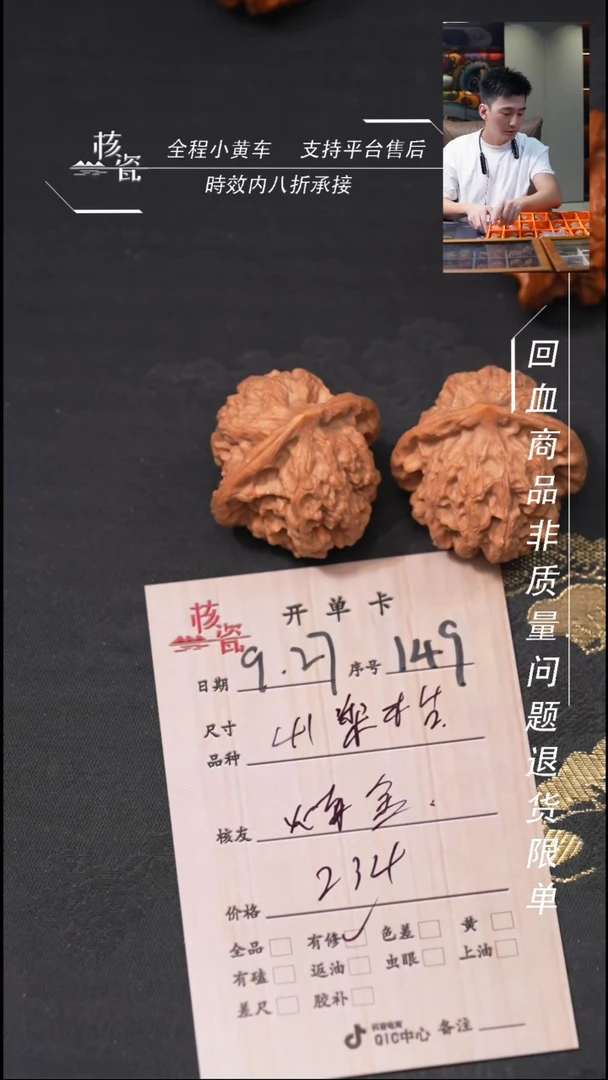 核瓷
全程小黄车 支持平台售后
時效内八折承接
回血商品非质量问题退货限单
核瓷
开单卡
日期 9.27 序号 149
尺寸 41
品种
核友
价格 234
全品 有修 色差 黄
有磕 返油 虫眼 上油
差尺 胶补
抖音电商
QIC中心 备注